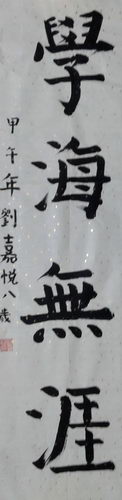 學海無涯
甲午年劉嘉悅八歲